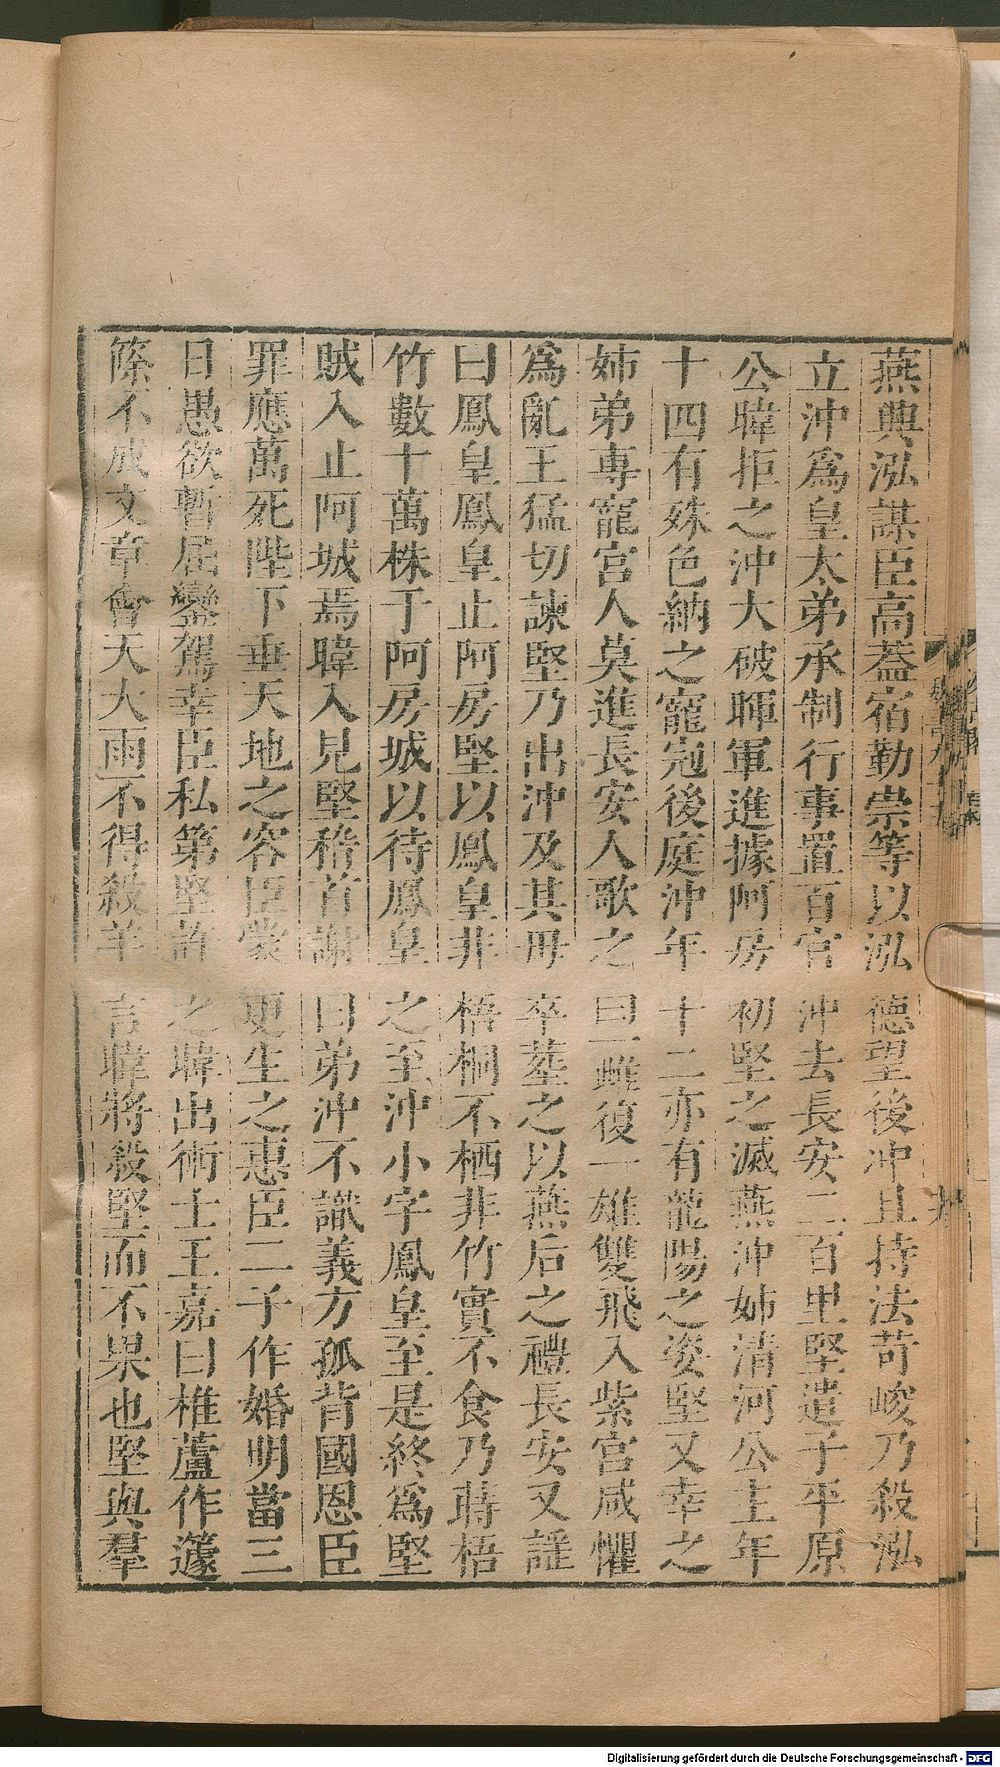 燕興泓謀臣高葢宿勤崇等以泓德望後沖且持法苛峻乃殺泓
立沖爲皇太弟承制行事置百官沖去長安二百里堅遣子平原
公暉拒之沖大破暉軍進據阿房初堅之滅燕沖姊清河公主年
十四有殊色納之寵冠後庭沖年十二亦有龍陽之姿堅又幸之
姊弟專寵宮人莫進長安人歌之曰一雌復一雄雙飛入紫宮咸懼
爲亂王猛切諫堅乃出沖及其毋卒塟之以燕后之禮長安又謡
曰鳳皇鳳皇止阿房堅以鳳皇非梧桐不栖非竹實不食乃蒔梧
竹數十萬株于阿房城以待鳳皇之至沖小字鳳皇至是終爲堅
賊入止阿城焉暐入見堅稽首謝曰弟沖不識義方孤背國恩臣
罪應萬死陛下垂天地之容臣蒙更生之惠臣二子作婚明當三
日愚欲暫屈鑾駕幸臣私第堅許之暐出術士王嘉曰椎蘆作蘧
篨不成文章會天大雨不得殺羊言暐將殺堅而不果也堅與羣
Digitalisierung gefördert durch die Deutsche Forschungsgemeinschaft - DFG